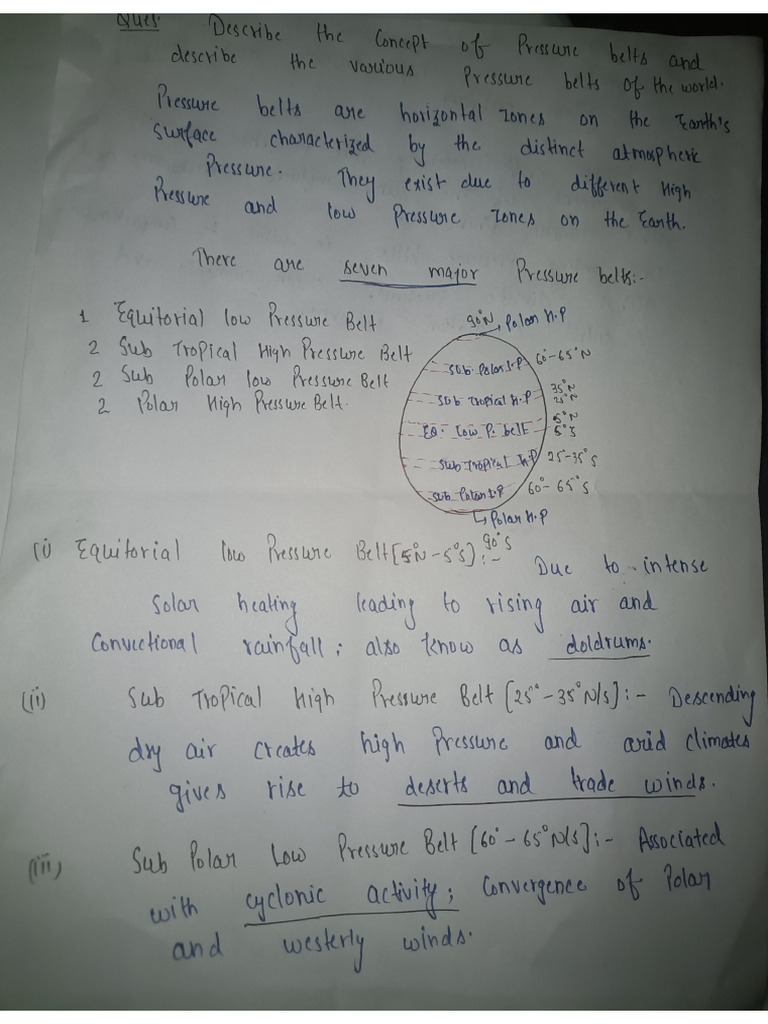 Ques. Describe the Concept of Pressure belts and
describe the various Pressure belts of the world.
Pressure belts are horizontal zones on the Earth's
surface characterized by the distinct atmospheric
Pressure. They exist due to different High
Pressure and low Pressure zones on the Earth.
There are seven major Pressure belts:-
1 Equitorial low Pressure Belt
2 Sub Tropical High Pressure Belt
2 Sub Polar low Pressure Belt
2 Polar High Pressure Belt.
90°N Polar H.P
Sub. Polar L.P 60°-65°N
Sub Tropical H.P 35°N
25°N
EQ. Low P. belt 5°N
5°S
Sub Tropical H.P 25-35°S
Sub Polar L.P 60°-65°S
Polar H.P
90°S
(i) Equitorial low Pressure Belt [5°N-5°S]:- Due to intense
Solar heating leading to rising air and
Convectional rainfall; also know as doldrums.
(ii) Sub Tropical High Pressure Belt [25°-35°N/S]:- Descending
dry air creates high Pressure and arid climates
gives rise to deserts and trade winds.
(iii) Sub Polar Low Pressure Belt [60°-65°N/S]:- Associated
with cyclonic activity; Convergence of Polar
and westerly winds.